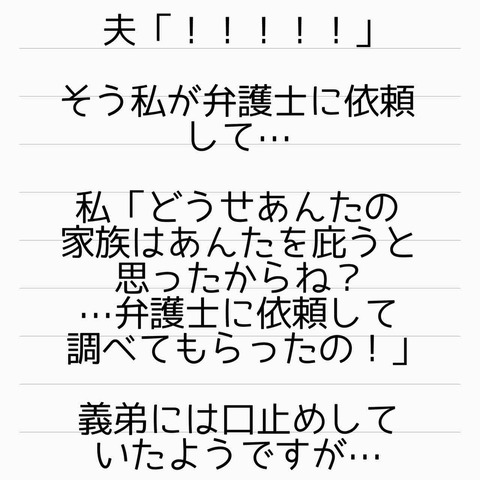 夫「！！！！！」
そう私が弁護士に依頼
して…
私「どうせあんたの
家族はあんたを庇うと
思ったからね？
…弁護士に依頼して
調べてもらったの！」
義弟には口止めして
いたようですが…